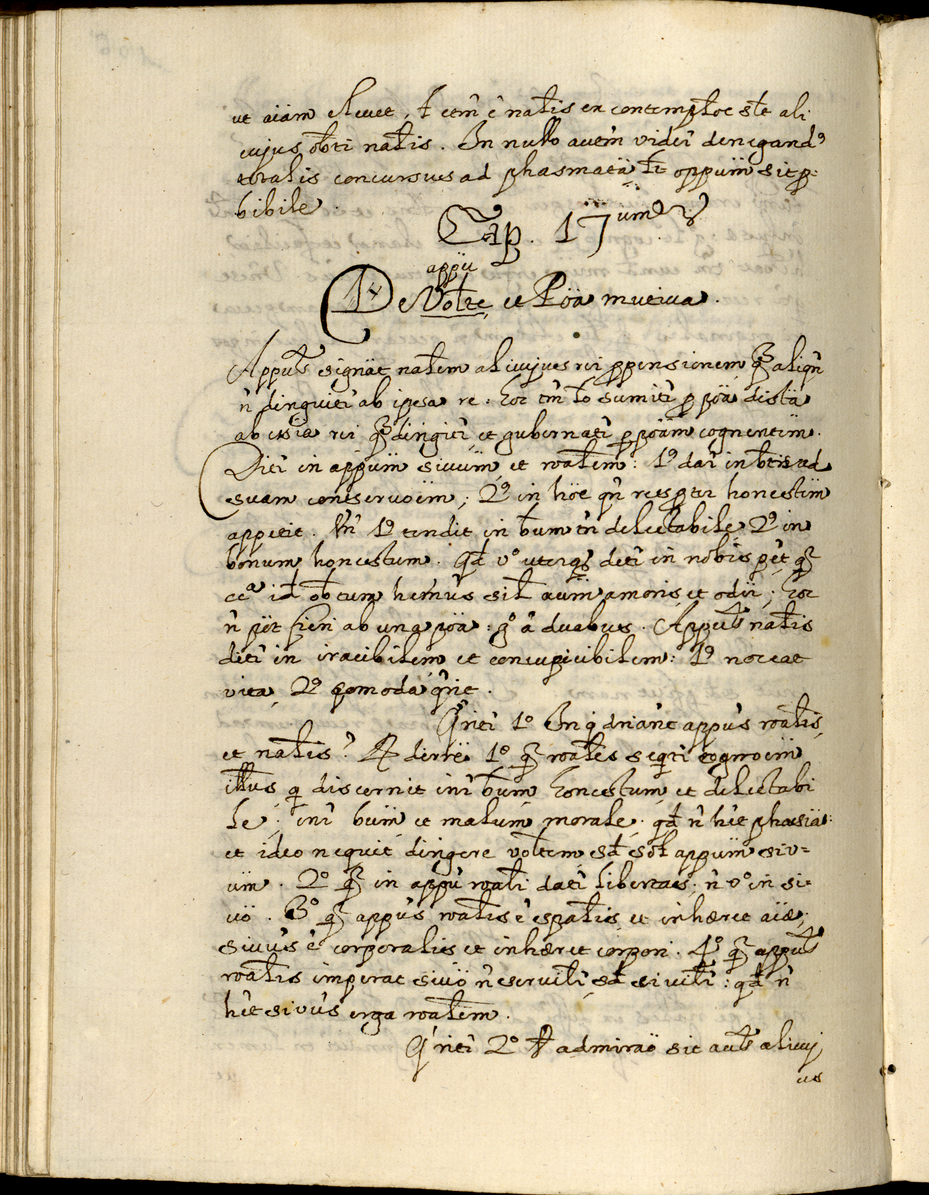 ut aiam elevet, etm ê natłis ex contemptoe ste ali
cujus obti natłis. In nullo autem videi denegandˀ
totalis concursus ad phasmata, Et oppum sit p-
bibile.
Cap. 17um
appu
De Volte, et Pöa mutiva.
Apptus signat natem alicujus rei ppensionem, q aliqn
ñ dinguiti ab ipsa re. hoc tm̃ sumiti p pöa dista
ab essia rei q dirigiti et gubernati p pöam cognentim.
Diti in appum sivum et roałem: 1º dari in btis ad
suam conservoem; 2º in höe qñ res pter honestum
appetit. Vñ 1º tendit in bum tñ delectabile, 2º in
bonum honestum. qd vº uterq deti in nobis pet q
cª id obtum hemus sił aum amoris et odii; hoc
ñ pöt fieri ab una pöa: gº â duabus. Apptus natłis
diti in iracibilem et concupicibilem: 1º noceat
vita, 2º comoda qrit.
Qriti 1º In q driant appus roatłis,
et natłis? R derrë 1º q roatłis seqti cognoem
illius q discernit inī bum honestum et delectabi
le; inī bum et malum morale. qd ñ hêt phasia:
et ideo nequit dirigere voltem sd soł appum siv=
um. 2º q in appu roali dati libertas. ñ vº in si-
vö. 3º q appus roatłis ê spatłis, et inhæret aiæ;
sivus ê corporalis et inhæret corpori. 4º q appus
roatłis imperat sivö ñ serviłi sd siviłi: qd ñ
hêt sivus erga roałem.
Qriti 2º admiraö sit aut alicuj
us